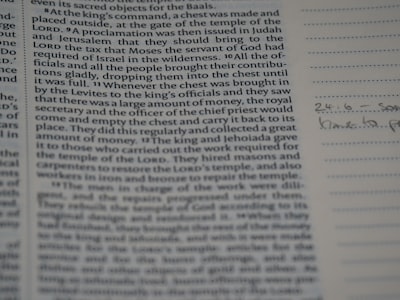 even its sacred objects for the Baals.
8At the king's command, a chest was made and
placed outside, at the gate of the temple of the
LORD. 9A proclamation was then issued in Judah
and Jerusalem that they should bring to the
LORD the tax that Moses the servant of God had
required of Israel in the wilderness. 10All the of-
ficials and all the people brought their contribu-
tions gladly, dropping them into the chest until
it was full. 11Whenever the chest was brought in
by the Levites to the king's officials and they saw
that there was a large amount of money, the royal
secretary and the officer of the chief priest would
come and empty the chest and carry it back to its
place. They did this regularly and collected a great
amount of money. 12The king and Jehoiada gave
it to those who carried out the work required for
the temple of the LORD. They hired masons and
carpenters to restore the LORD's temple, and also
workers in iron and bronze to repair the temple.
13The men in charge of the work were dili-
gent, and the repairs progressed under them.
They rebuilt the temple of God according to its
original design and reinforced it. 14When they
had finished, they brought the rest of the money
to the king and Jehoiada, and with it were made
articles for the LORD's temple: articles for the
service and for the burnt offerings, and also
dishes and other objects of gold and silver. As
24:6 -